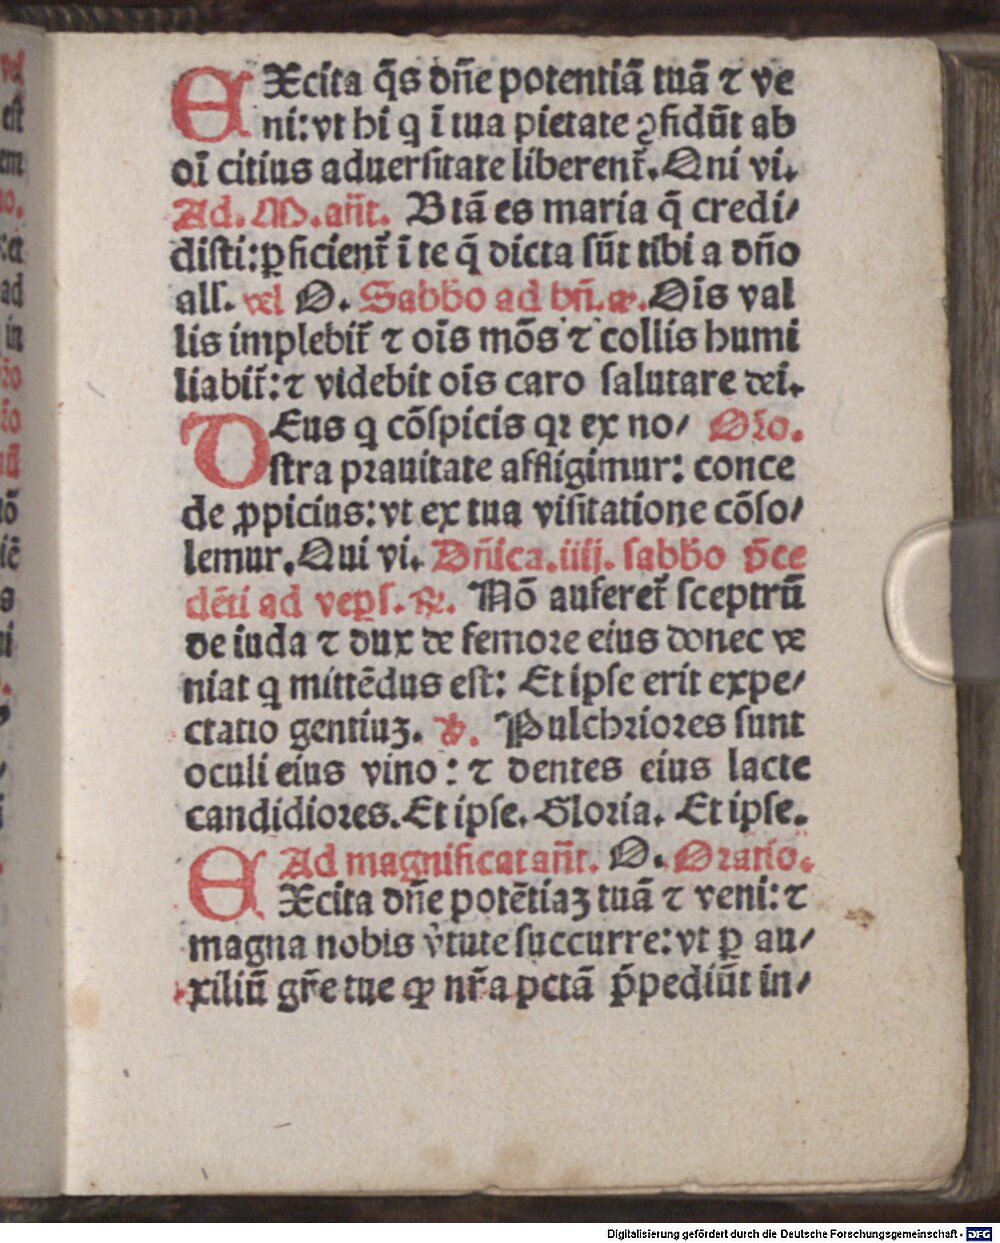 EXcita q̃s dñe potentiã tuã ⁊ ve
ni: vt hi q ĩ tua pietate ꝯfidũt ab
oĩ citius aduersitate liberent᷑. Qui vi.
Ad. M. añt. Btã es maria q̃ credi/
disti: ꝑficient᷑ ĩ te q̃ dicta sũt tibi a dño
all. vel O. Sabb̃o ad bñ. añ. Oĩs val
lis implebit᷑ ⁊ oĩs mõs ⁊ collis humi
liabit᷑: ⁊ videbit oĩs caro salutare dei.
DEus q cõspicis qꝛ ex no/ Oꝛo.
stra prauitate affligimur: conce
de ꝓpicius: vt ex tua visitatione cõso/
lemur. Qui vi. Dñica. iiij. sabb̃o p̃ce
dẽti ad veꝑs. ℟. Nõ auferet᷑ sceptrũ
de iuda ⁊ dux de femore eius donec ve
niat q mittẽdus est: Et ipse erit expe/
ctatio gentiuꝫ. ℣. Pulchꝛioꝛes sunt
oculi eius vino: ⁊ dentes eius lacte
candidioꝛes. Et ipse. Gloꝛia. Et ipse.
Ad magnificat añt. O. Oꝛatio.
EXcita dñe potẽtiaꝫ tuã ⁊ veni: ⁊
magna nobis v̾tute succurre: vt ꝑ au/
xiliũ gr̃e tue ꝙ nr̃a pctã p̃pediũt in/
Digitalisierung gefördert durch die Deutsche Forschungsgemeinschaft - DFG